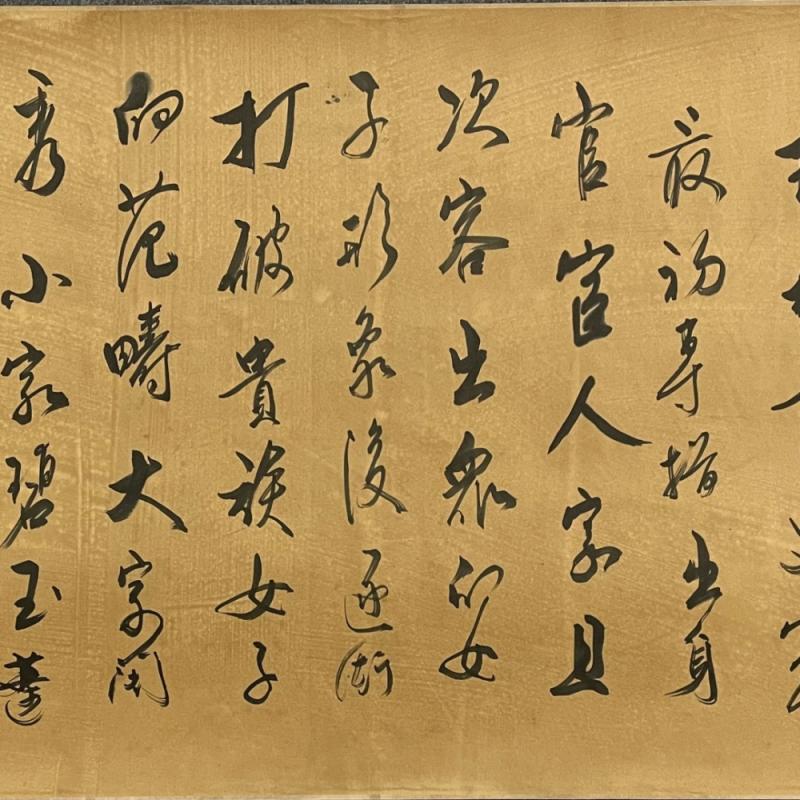 最初專指出身
官宦人家且
次容出眾的女
子形象後逐漸
打破貴族女子
的范疇大家閨
秀小家碧玉